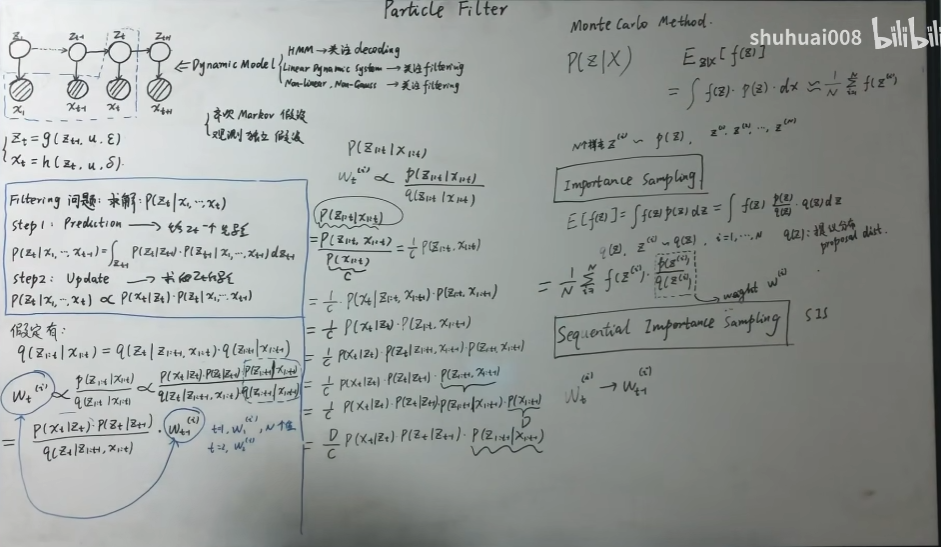 Particle Filter
shuhuai008 bilibili
z₁ z_{t-1} z_t z_{t+1}
x₁ x_{t-1} x_t x_{t+1}
⇐ Dynamic Model
HMM → 关注 decoding
Linear Dynamic System → 关注 filtering
Non-linear, Non-Gauss → 关注 filtering
齐次 Markov 假设
观测独立假设
z_t = g(z_{t-1}, u, ε)
x_t = h(z_t, u, δ).
Filtering 问题: 求解: P(z_t|x₁,…,x_t)
Step 1: Prediction →
P(z_t|x₁,…,x_{t-1}) = ∫_{z_{t-1}} P(z_t|z_{t-1})·P(z_{t-1}|x₁,…,x_{t-1}) dz_{t-1}
step 2: Update →
P(z_t|x₁,…,x_t) ∝ P(x_t|z_t)·P(z_t|x₁,…,x_{t-1})
假定有:
q(z_{1:t}|x_{1:t}) = q(z_t|z_{1:t-1}, x_{1:t})·q(z_{1:t-1}|x_{1:t-1})
w_t^{(i)} ∝ p(z_{1:t}|x_{1:t}) / q(z_{1:t}|x_{1:t}) ∝ P(x_t|z_t)·P(z_t|z_{t-1})·P(z_{1:t-1}|x_{1:t-1}) / q(z_t|z_{1:t-1}, x_{1:t})·q(z_{1:t-1}|x_{1:t-1})
= P(x_t|z_t)·P(z_t|z_{t-1}) / q(z_t|z_{1:t-1}, x_{1:t}) · w_{t-1}^{(i)}
P(z_{1:t}|x_{1:t})
w_t^{(i)} ∝ p(z_{1:t}|x_{1:t}) / q(z_{1:t}|x_{1:t})
P(z_{1:t}|x_{1:t})
= P(z_{1:t}, x_{1:t}) / P(x_{1:t}) = 1/C P(z_{1:t}, x_{1:t})
C
= 1/C · P(x_t|z_{1:t}, x_{1:t-1})·P(z_{1:t}, x_{1:t-1})
= 1/C P(x_t|z_t)·P(z_{1:t}, x_{1:t-1})
= 1/C P(x_t|z_t)·P(z_t|z_{1:t-1}, x_{1:t-1})·P(z_{1:t-1}, x_{1:t-1})
= 1/C P(x_t|z_t)·P(z_t|z_{t-1})·P(z_{1:t-1}, x_{1:t-1})
= 1/C P(x_t|z_t)·P(z_t|z_{t-1})·P(z_{1:t-1}|x_{1:t-1})·P(x_{1:t-1})
D
= D/C P(x_t|z_t) P(z_t|z_{t-1})·P(z_{1:t-1}|x_{1:t-1})
Monte Carlo Method.
P(Z|X) E_{Z|X}[f(z)]
= ∫ f(z)·p(z)·dx ≈ 1/N Σ_{i=1}^N f(z^{(i)})
N个样本 z^{(i)} ~ p(z), z^{(1)}, z^{(2)}, …, z^{(N)}
Importance Sampling
E[f(z)] = ∫ f(z) p(z) dz = ∫ f(z) p(z)/q(z) · q(z) dz
q(z), z^{(i)} ~ q(z), i=1,…,N q(z): 提议分布
proposal dist.
= 1/N Σ_{i=1}^N f(z^{(i)})· p(z^{(i)}) / q(z^{(i)})
weight w^{(i)}
Sequential Importance Sampling SIS
w_t^{(i)} → w_{t-1}^{(i)}